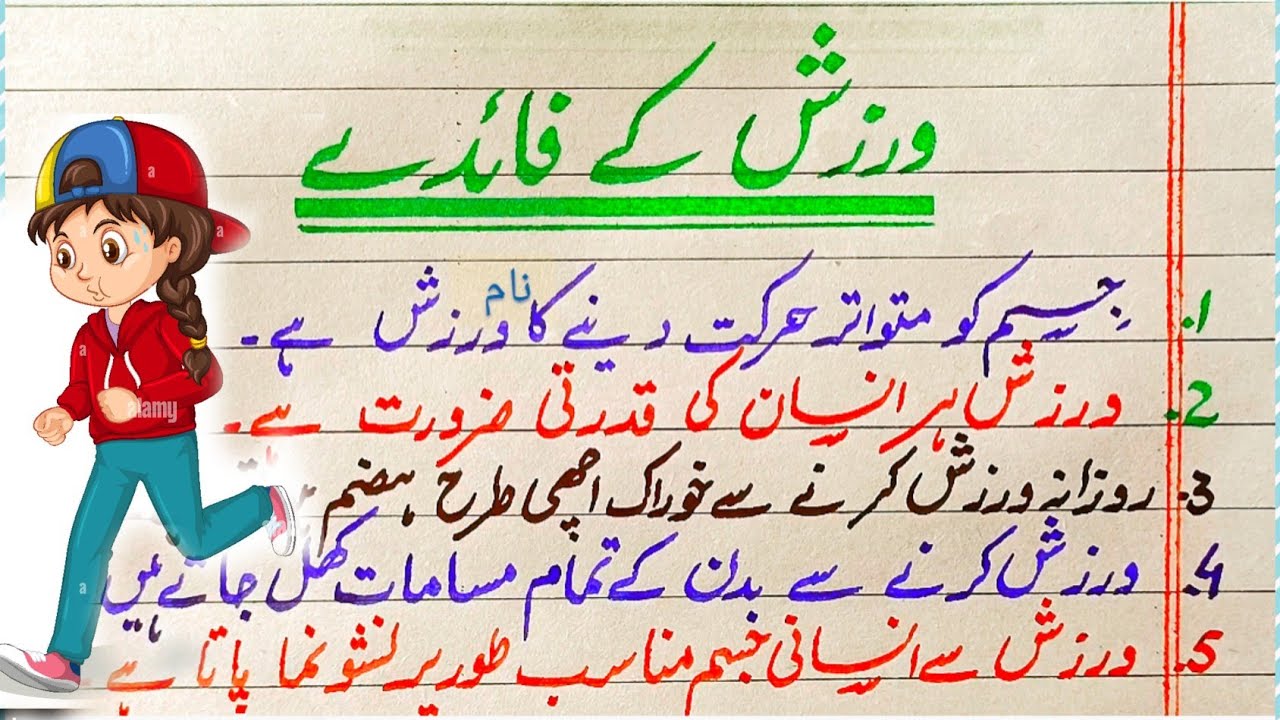 ورزش کے فائدے
1. جِسم کو متواتر حرکت دینے کا نام ورزش ہے۔
2. ورزش ہر انسان کی قدرتی ضرورت ہے۔
3. روزانہ ورزش کرنے سے خوراک اچھی طرح ہضم
4. ورزش کرنے سے بدن کے تمام مسامات کھل جاتے ہیں
5. ورزش سے انسانی جسم مناسب طور پر نشوونما پاتا ہے۔
a
a
a
alamy
a
a